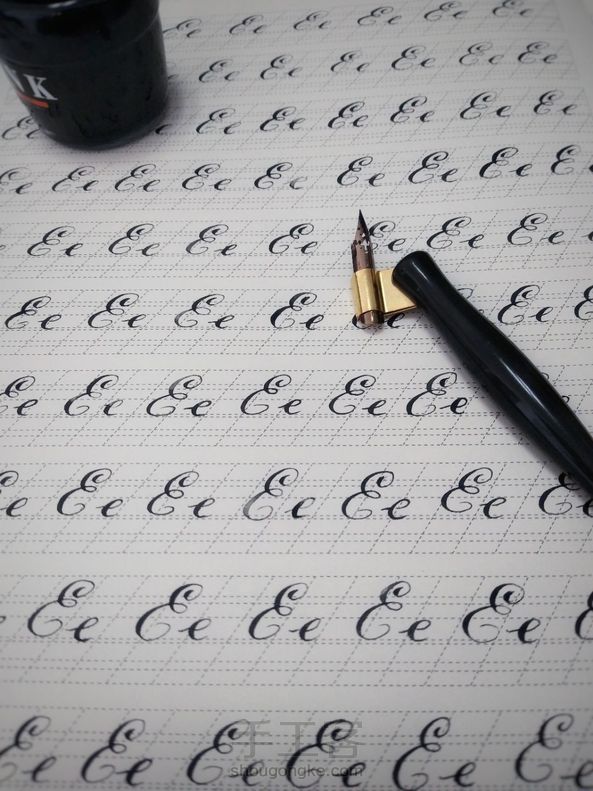 NK
Ee Ee Ee Ee Ee Ee
Ee Ee Ee Ee Ee Ee
Ee Ee Ee Ee Ee Ee Ee
Ee Ee Ee Ee Ee Ee Ee Ee Ee
Ee Ee Ee Ee Ee Ee Ee
Ee Ee Ee Ee e Ee Ee
Ee Ee Ee Ee Ee Ee
e Ee Ee Ee Ee Ee E
Ee Ee Ee Ee Ee
Ee Ee Ee Ee Ee Ee
手工客
shougongke.com